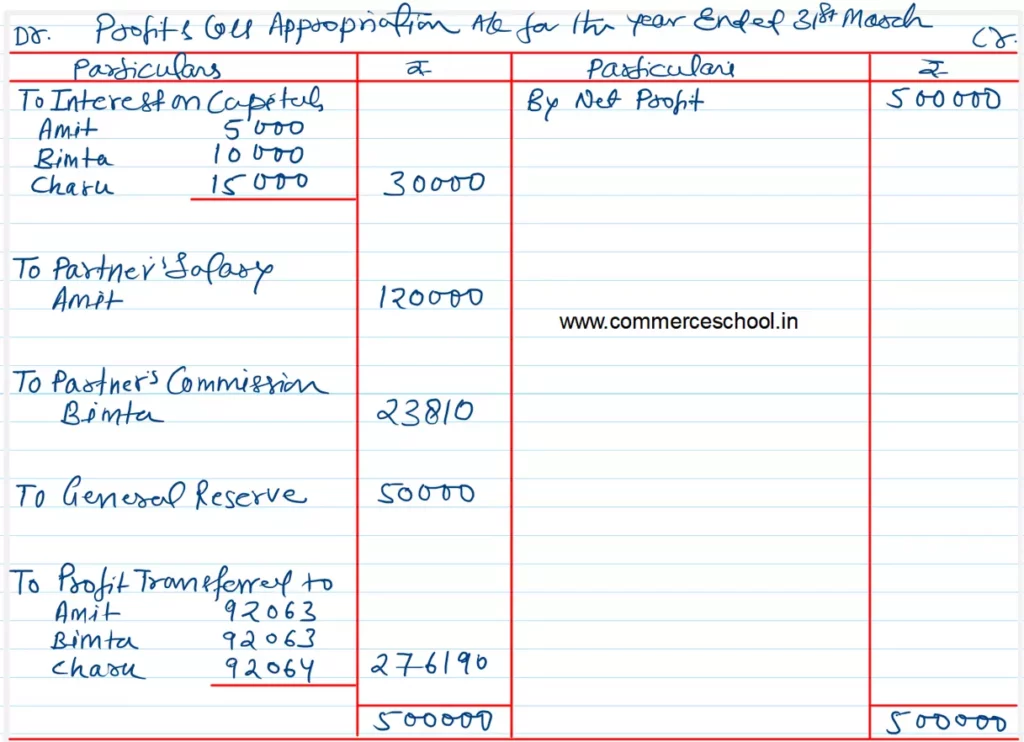 Dr. Profit & Loss Appropriation A/c for the year Ended 31st March Cr.
Particulars ₹ Particulars ₹
To Interest on Capitals By Net Profit 500000
Amit 5000
Bimta 10000
Charu 15000 30000
To Partner's Salary
Amit 120000
www.commerceschool.in
To Partner's Commission
Bimta 23810
To General Reserve 50000
To Profit Transferred to
Amit 92063
Bimta 92063
Charu 92064 276190
500000 500000